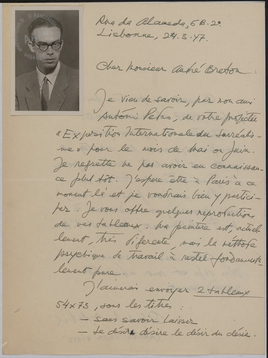 Rua da Alameda, 6B-2º
Lisbonne, 24.3.47.
Cher monsieur André Breton.
Je viens de savoir, par mon ami
António Pedro, de votre projetée
« Exposition Internationale du Surréalis-
me » pour le mois de Mai ou Juin.
Je regrette ne pas avoir eu connaissan-
ce plus tôt. J'espère être à Paris à ce
moment là et je voudrais bien y partici-
per. Je vous offre quelques reproductions
de mes tableaux. Ma peinture est, actuel-
lement, très diferente, mais la méthode
psychique de travail à resté fondamenta-
lement pure.
J'aimerai envoyer 2 tableaux
54x73, sous les titres:
— sans savoir laisser
— Le désir désire le désir du désir.